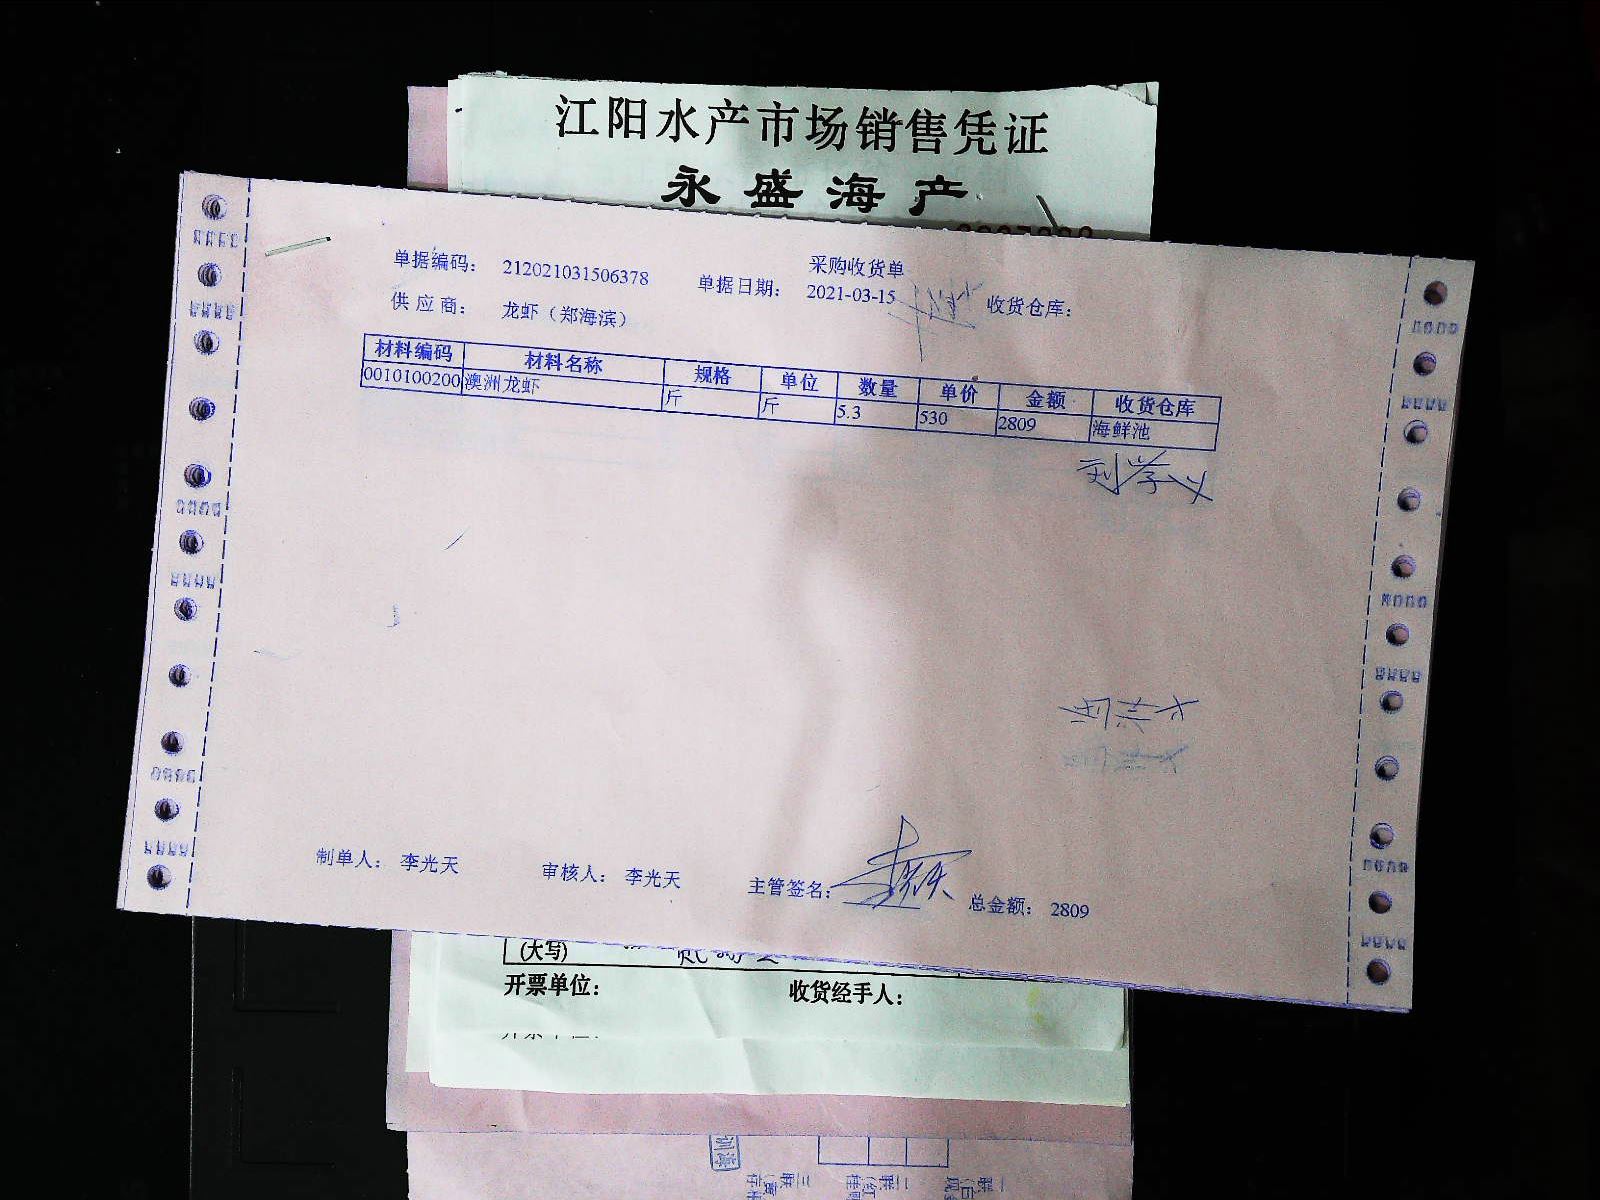 江阳水产市场销售凭证
永盛海产
采购收货单
单据编码： 212021031506378 单据日期： 2021-03-15 收货仓库：
供应商： 龙虾（郑海滨）
材料编码 材料名称 规格 单位 数量 单价 金额 收货仓库
0010100200 澳洲龙虾 斤 斤 5.3 530 2809 海鲜池
刘学义
制单人： 李光天 审核人： 李光天 主管签名： 李光天 总金额： 2809
(大写)
开票单位： 收货经手人：